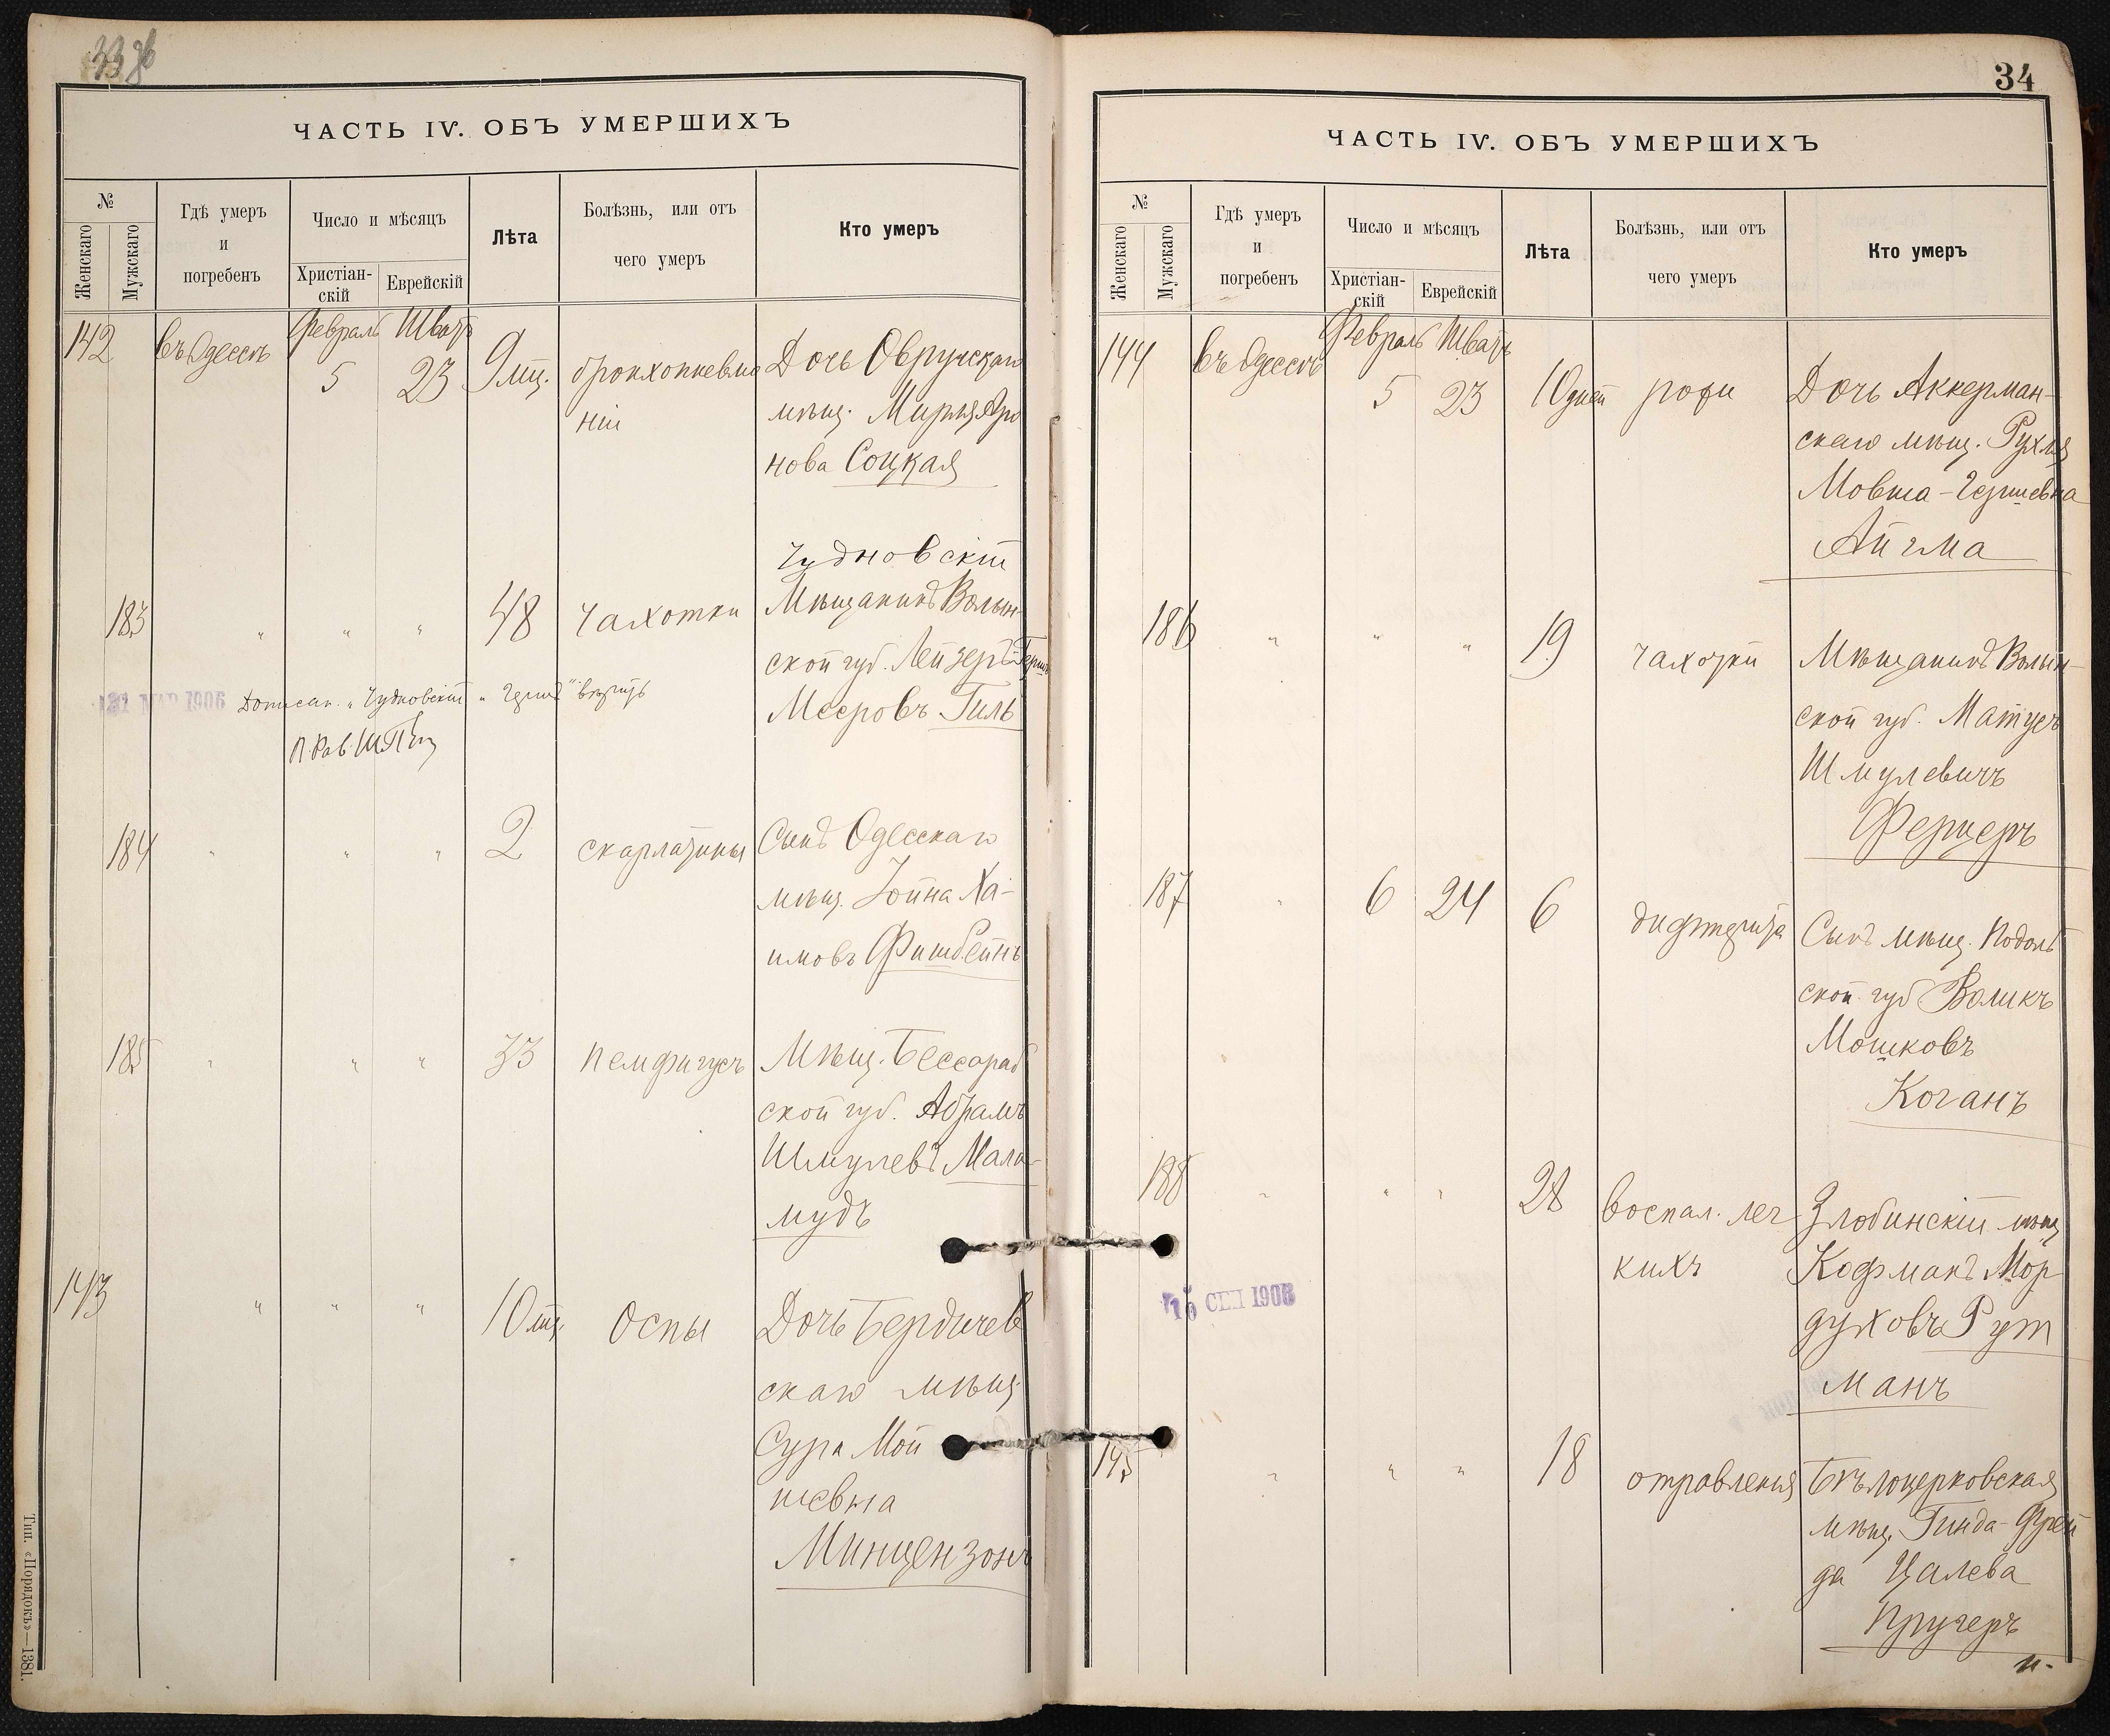 33 об
ЧАСТЬ IV. ОБЪ УМЕРШИХЪ
№
Женскаго
Мужскаго
Гдѣ умеръ
и
погребенъ
Число и мѣсяцъ
Христіан-
скій
Еврейскій
Лѣта
Болѣзнь, или отъ
чего умеръ
Кто умеръ
142 въ Одессѣ Февраль 5 Шватъ 23 9 мц. бронхопневмо
ніи
Дочь Овручскаго
мѣщ. Мирья Аро
нова Соцкая
Чудновскій
183 " " " 48 чахотки Мѣщанинъ Волын-
ской губ. Лейзеръ-Герш
Мееровъ Гиль
21 МАР 1906 Дописан. "Чудновскій" "Герш" вѣрить
П. Рав.
184 " " " 2 скарлатины Сынъ Одесскаго
мѣщ. Іойна Ха-
имовъ Фишбейнъ
185 " " " 33 пемфигусъ Мѣщ. Бессараб
ской губ. Абрамъ
Шмулевъ Мала-
мудъ
143 " " " 10 мц. Оспы Дочь Бердичев
скаго мѣщ.
Сура Мой
шевна
Минцензонъ
Тип. «Порядокъ»—1381.
34
ЧАСТЬ IV. ОБЪ УМЕРШИХЪ
№
Женскаго
Мужскаго
Гдѣ умеръ
и
погребенъ
Число и мѣсяцъ
Христіан-
скій
Еврейскій
Лѣта
Болѣзнь, или отъ
чего умеръ
Кто умеръ
144 въ Одессѣ Февраль 5 Шватъ 23 10 дней рожи Дочь Аккерман-
скаго мѣщ. Рухля
Мовша-Гершевна
Айгма
186 " " " 19 чахотки Мѣщанинъ Волын-
ской губ. Матусъ
Шмулевичъ
Ферцеръ
187 " 6 24 6 дифтерита Сынъ мѣщ. Подоль
ской губ Воликъ
Мошковъ
Коганъ
188 " " " 28 воспал. лег
кихъ
Злобинскій мѣщ
Кофманъ Мор
духовъ Рут
манъ
15 СЕП 1906
145 " " " 18 отравленія Бѣлоцерковская
мѣщ. Гинда-Фрей
да Цалева
Кругеръ